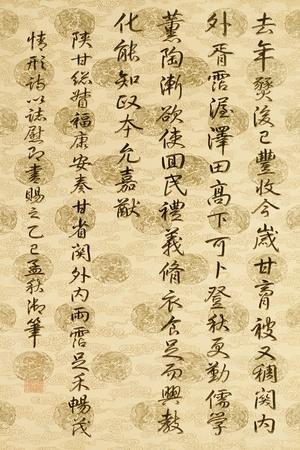 去年燹後已豐收今歲甘膏被又稠関内
外胥霑渥澤田高下可卜登秋更勤儒學
薰陶漸欲使回民禮義脩衣食足而興教
化能知政本允嘉猷
陝甘総督福康安奏甘省関外内雨霑足禾暢茂
情形詩以誌慰即書賜之乙巳孟秋御筆